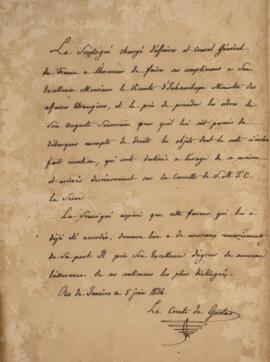 Le Soussigné chargé d'affaires et Consul Général
de France a l'honneur de faire ses complimens à Son
Excellence Monsieur le Vicomte d'Inhambupe Ministre des
affaires Etrangères, et le prie de prendre les ordres de
Son Auguste Souverain pour qu'il lui soit permis de
débarquer exempts de droits les objets dont la note
fait mention, qui sont destinés à l'usage de sa maison
et arrivés dernièrement sur la Corvette de S. M. T. C.
la Seine.
Le Soussigné espère que cette faveur qui lui a
déjà été accordée, donnera lieu à de nouveaux remerciements
de sa part. Il prie Son Excellence d'agréer de nouveau
l'assurance de ses sentimens les plus distingués.
Rio de Janeiro ce 5 juin 1826
Le Comte de Gestas